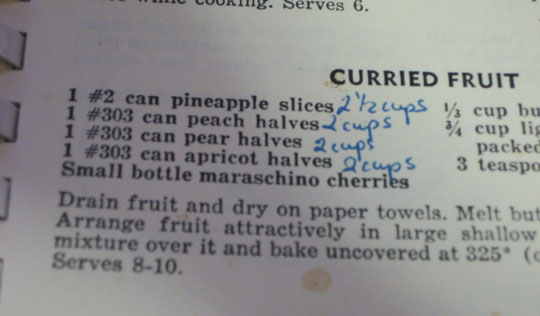 while cooking. Serves 6.
CURRIED FRUIT
1 #2 can pineapple slices 2 1/2 cups
1 #303 can peach halves 2 cups
1 #303 can pear halves 2 cups
1 #303 can apricot halves 2 cups
Small bottle maraschino cherries
⅓ cup bu
¾ cup lig
packed
3 teaspo
Drain fruit and dry on paper towels. Melt but
Arrange fruit attractively in large shallow
mixture over it and bake uncovered at 325° (
Serves 8-10.